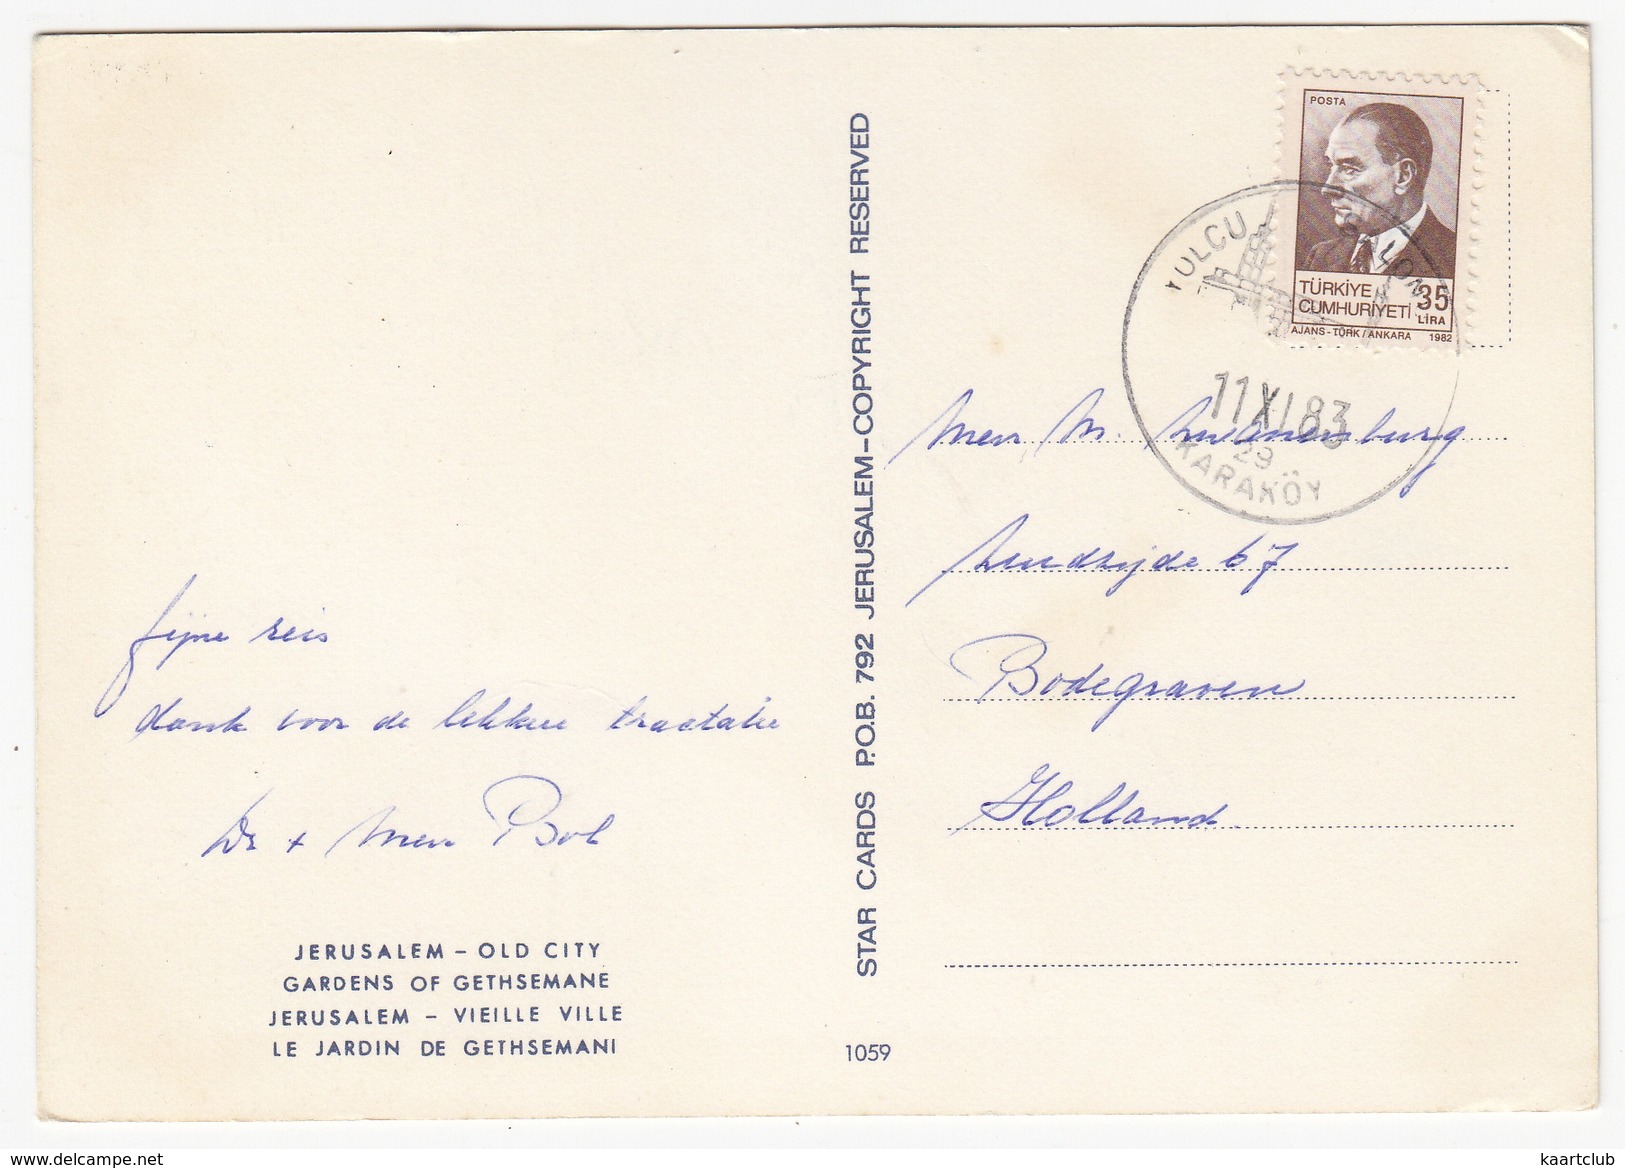 fijne reis
dank voor de lekkere tractatie
Dr + Mevr Bol
JERUSALEM – OLD CITY
GARDENS OF GETHSEMANE
JERUSALEM – VIEILLE VILLE
LE JARDIN DE GETHSEMANI
STAR CARDS P.O.B. 792 JERUSALEM–COPYRIGHT RESERVED
1059
POSTA
TÜRKİYE
CUMHURİYETİ 35
LİRA
AJANS-TÜRK/ANKARA 1982
YOLCU SALONU
11 XI 83
29
KARAKÖY
Mevr M. Zwanenburg
Zuidzijde 67
Bodegraven
Holland
www.delcampe.net
kaartclub